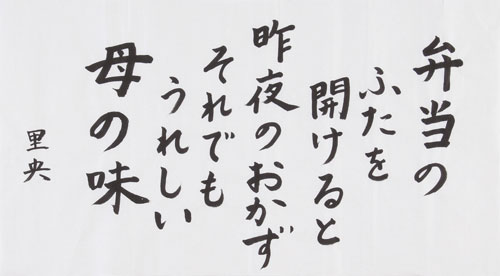 弁当の
ふたを
開けると
昨夜のおかず
それでも
うれしい
母の味
里央